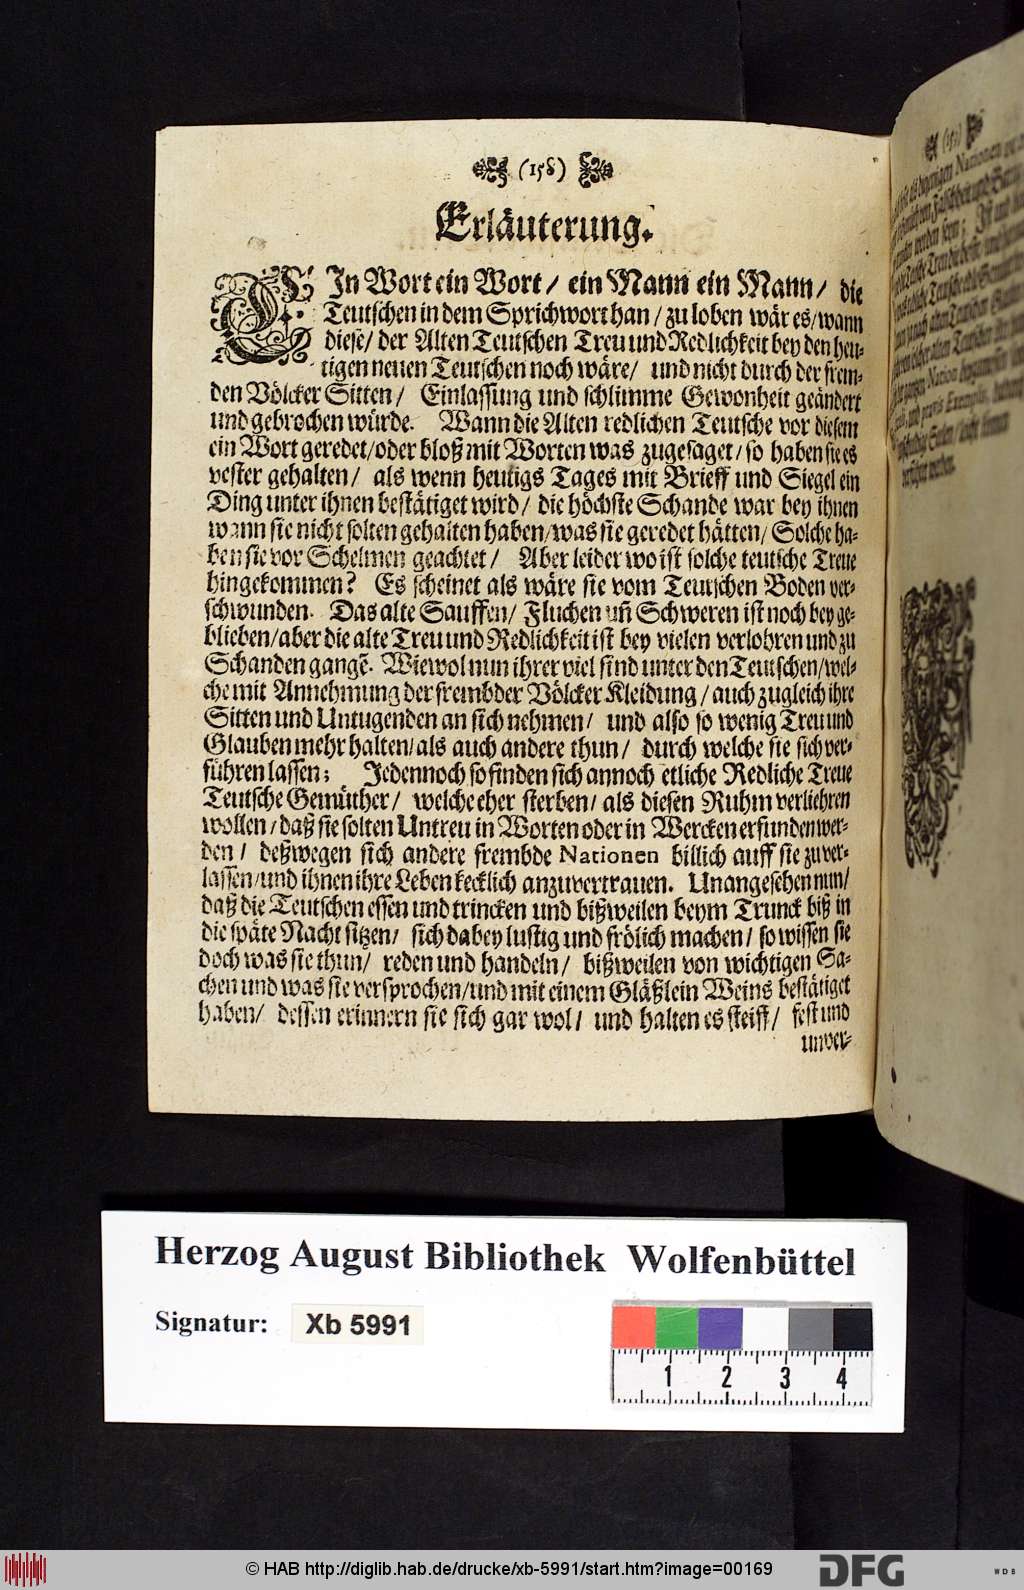 (158)
Erläuterung.
EIn Wort ein Wort/ ein Mann ein Mann/ die
Teutschen in dem Sprichwort han/ zu loben wär es/ wann
diese/ der Alten Teutschen Treu und Redlichkeit bey den heu-
tigen neuen Teutschen noch wäre/ und nicht durch der frem-
den Völcker Sitten/ Einlassung und schlimme Gewonheit geändert
und gebrochen würde. Wann die Alten redlichen Teutsche vor diesem
ein Wort geredet/ oder bloß mit Worten was zugesaget/ so haben sie es
vester gehalten/ als wenn heutigs Tages mit Brieff und Siegel ein
Ding unter ihnen bestätiget wird/ die höchste Schande war bey ihnen
wann sie nicht solten gehalten haben/ was sie geredet hätten/ Solche ha-
ben sie vor Schelmen geachtet/ Aber leider wo ist solche teutsche Treue
hingekommen? Es scheinet als wäre sie vom Teutschen Boden ver-
schwunden. Das alte Sauffen/ Fluchen uñ Schweren ist noch bey ge-
blieben/ aber die alte Treu und Redlichkeit ist bey vielen verlohren und zu
Schanden gangẽ. Wiewol nun ihrer viel sind unter den Teutschen/ wel-
che mit Annehmung der frembder Völcker Kleidung/ auch zugleich ihre
Sitten und Untugenden an sich nehmen/ und also so wenig Treu und
Glauben mehr halten/ als auch andere thun/ durch welche sie sich ver-
führen lassen; Jedennoch so finden sich annoch etliche Redliche Treue
Teutsche Gemüther/ welche eher sterben/ als diesen Ruhm verliehren
wollen/ daß sie solten Untreu in Worten oder in Wercken erfunden wer-
den/ deßwegen sich andere frembde Nationen billich auff sie zu ver-
lassen/ und ihnen ihre Leben kecklich anzuvertrauen. Unangesehen nun/
daß die Teutschen essen und trincken und bißweilen beym Trunck biß in
die späte Nacht sitzen/ sich dabey lustig und frölich machen/ so wissen sie
doch was sie thun/ reden und handeln/ bißweilen von wichtigen Sa-
chen und was sie versprochen/ und mit einem Gläßlein Weins bestätiget
haben/ dessen erinnern sie sich gar wol/ und halten es steiff/ fest und
unver-
Herzog August Bibliothek Wolfenbüttel
Signatur: Xb 5991
1 2 3 4
© HAB http://diglib.hab.de/drucke/xb-5991/start.htm?image=00169
DFG
WDB